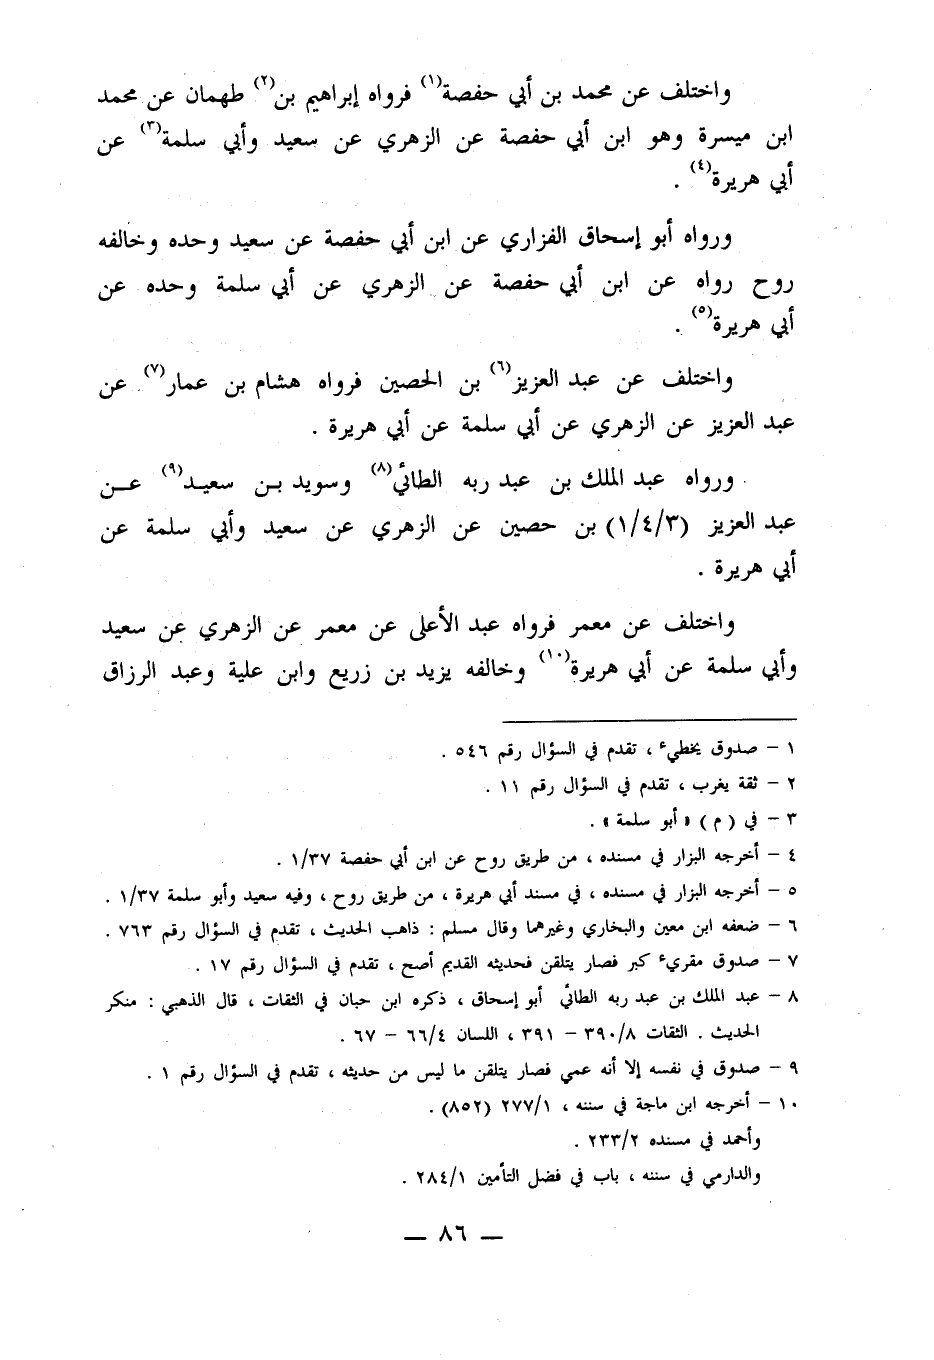 واختلف عن محمد بن أبي حفصة(١) فرواه إبراهيم بن(٢) طهمان عن محمد
ابن ميسرة وهو ابن أبي حفصة عن الزهري عن سعيد وأبي سلمة(٣) عن
أبي هريرة(٤) .
ورواه أبو إسحاق الفزاري عن ابن أبي حفصة عن سعيد وحده وخالفه
روح رواه عن ابن أبي حفصة عن الزهري عن أبي سلمة وحده عن
أبي هريرة(٥) .
واختلف عن عبد العزيز(٦) بن الحصين فرواه هشام بن عمار(٧) عن
عبد العزيز عن الزهري عن أبي سلمة عن أبي هريرة .
ورواه عبد الملك بن عبد ربه الطائي(٨) وسويد بن سعيد(٩) عن
عبد العزيز (١/٤/٣) بن حصين عن الزهري عن سعيد وأبي سلمة عن
أبي هريرة .
واختلف عن معمر فرواه عبد الأعلى عن معمر عن الزهري عن سعيد
وأبي سلمة عن أبي هريرة(١٠) وخالفه يزيد بن زريع وابن علية وعبد الرزاق
١ – صدوق يخطيء ، تقدم في السؤال رقم ٥٤٦ .
٢ – ثقة يغرب ، تقدم في السؤال رقم ١١ .
٣ – في ( م ) « أبو سلمة » .
٤ – أخرجه البزار في مسنده ، من طريق روح عن ابن أبي حفصة ١/٣٧ .
٥ – أخرجه البزار في مسنده ، في مسند أبي هريرة ، من طريق روح ، وفيه سعيد وأبو سلمة ١/٣٧ .
٦ – ضعفه ابن معين والبخاري وغيرهما وقال مسلم : ذاهب الحديث ، تقدم في السؤال رقم ٧٦٣ .
٧ – صدوق مقريء كبر فصار يتلقن فحديثه القديم أصح ، تقدم في السؤال رقم ١٧ .
٨ – عبد الملك بن عبد ربه الطائي أبو إسحاق ، ذكره ابن حبان في الثقات ، قال الذهبي : منكر
الحديث . الثقات ٣٩٠/٨ – ٣٩١ ، اللسان ٦٦/٤ – ٦٧ .
٩ – صدوق في نفسه إلا أنه عمي فصار يتلقن ما ليس من حديثه ، تقدم في السؤال رقم ١ .
١٠ – أخرجه ابن ماجة في سننه ، ٢٧٧/١ (٨٥٢) .
وأحمد في مسنده ٢٣٣/٢ .
والدارمي في سننه ، باب في فضل التأمين ٢٨٤/١ .
— ٨٦ —